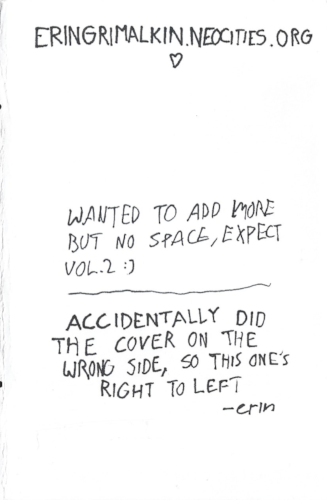 ERINGRIMALKIN.NEOCITIES.ORG
♡
WANTED TO ADD MORE
BUT NO SPACE, EXPECT
VOL.2 :)
ACCIDENTALLY DID
THE COVER ON THE
WRONG SIDE, SO THIS ONE'S
RIGHT TO LEFT
-erin